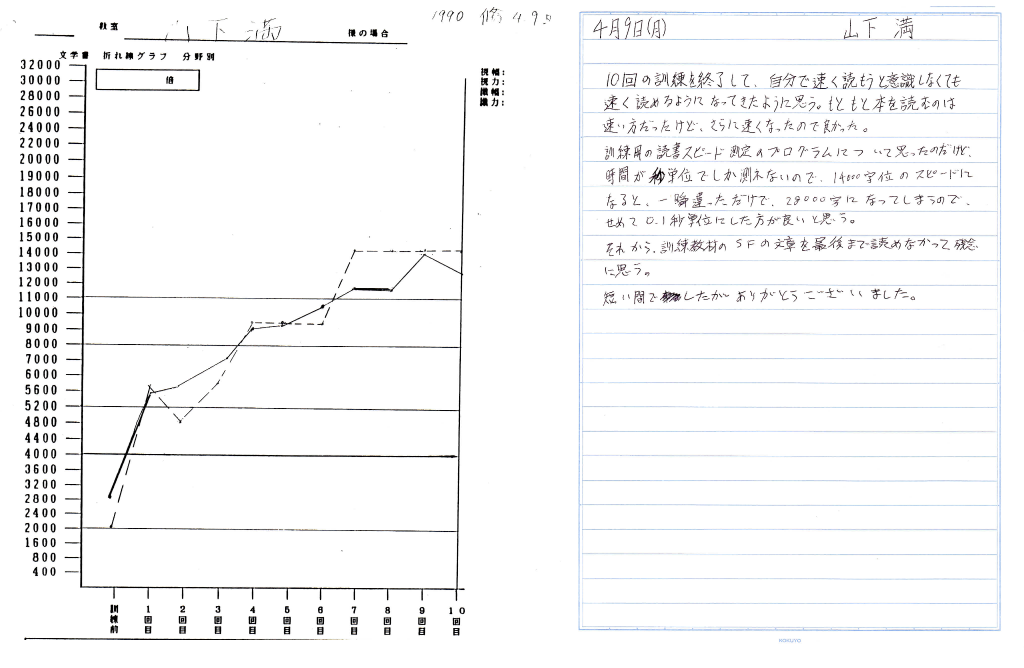 1990 修 49
教室 山下 満 様の場合
文学書 折れ線グラフ 分野別
倍
視幅:
視力:
識幅:
識力:
32000
30000
28000
26000
24000
22000
20000
19000
18000
17000
16000
15000
14000
13000
12000
11000
10000
9000
8000
7000
6000
5600
5200
4800
4400
4000
3600
3200
2800
2400
2000
1600
800
400
訓練前 1回目 2回目 3回目 4回目 5回目 6回目 7回目 8回目 9回目 10回目
4月9日(月) 山下 満
10回の訓練を終了して、自分で速く読もうと意識しなくても
速く読めるようになってきたように思う。もともと本を読むのは
速い方だったけど、さらに速くなったので良かった。
訓練用の読書スピード測定のプログラムについて思ったのだけど、
時間が秒単位でしか測れないので、14000字位のスピードに
なると、一瞬違っただけで、28000字になってしまうので、
せめて0.1秒単位にした方が良いと思う。
それから、訓練教材のSFの文章を最後まで読めなかって残念
に思う。
短い間でしたがありがとうございました。
KOKUYO